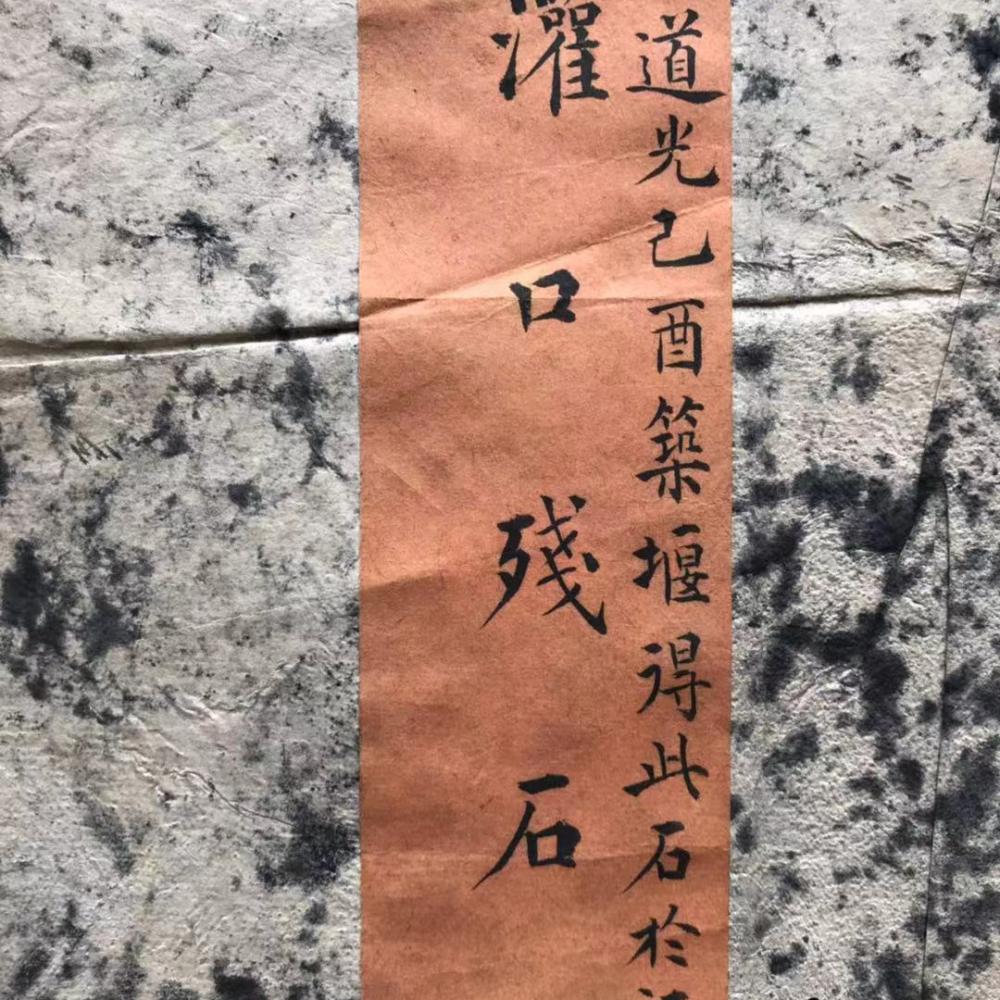 道光己酉築堰得此石於
灌口殘石